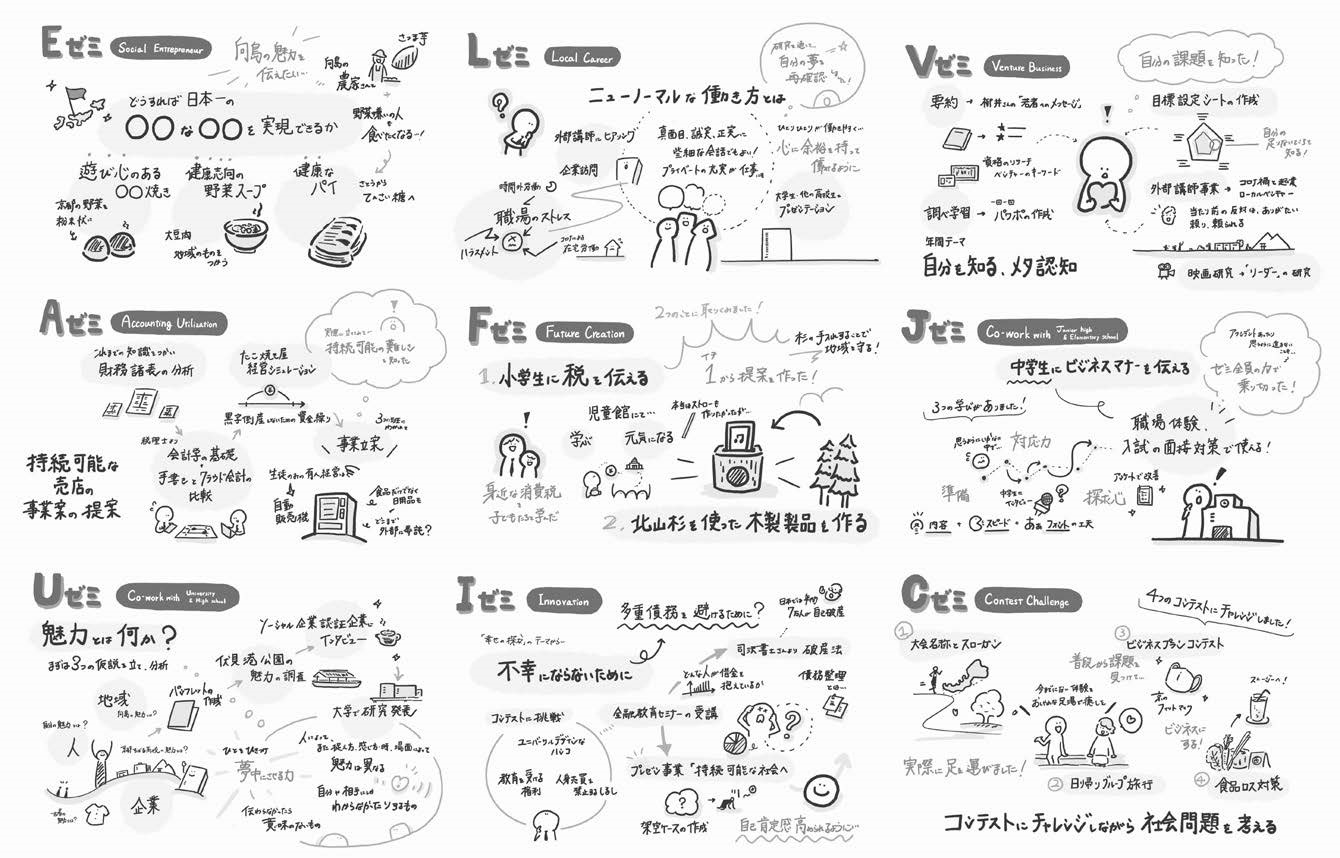 Eゼミ
Social Entrepreneur
向島の魅力を
伝えたい…
さつま芋
向島の
農家さんと
どうすれば 日本一の
〇〇な〇〇を実現できるか
野菜嫌いの人
食べたくなるー!
遊び心のある
〇〇焼き
健康志向の
野菜スープ
健康な
パイ
京都の野菜を
粉末状に
大豆肉
地域のものを
つかう
さとうから
てんさい糖へ
Lゼミ
Local Career
自分の夢を
再確認
ニューノーマルな働き方とは
外部講師にヒアリング
企業訪問
真面目、誠実、正実に
些細な会話でもよい!
プライベートの充実が仕事に
ひとりひとりが働きやすく…
心に余裕を持って
働けるように
時間外労働
職場のストレス
ハラスメント
在宅労働
大学生・他の高校生に
プレゼンテーション
Vゼミ
Venture Business
自分の課題を知った!
要約
目標設定シートの作成
自分の
足りないところを
知る!
資格のリサーチ
ベンチャーのキーワード
調べ学習
パラポの作成
外部講師事業
コロナ禍で起業
ローカルベンチャー
当たり前の反対は、ありがたい
頼り、頼られる
年間テーマ
自分を知る、メタ認知
映画研究→「リーダー」の研究
Aゼミ
Accounting Utilization
持続可能の難しさ
を知った
これまでの知識をつかい
財務諸表の分析
たこ焼き屋
経営シミュレーション
黒字倒産しないための資金繰り
税理士より
会計学の基礎
手書きとクラウド会計の
比較
事業立案
持続可能な
売店の
事業案の提案
生徒のみの有人経営は
自動
販売機
食品だけでなく
日用品も
どこまで
外部に委託?
Fゼミ
Future Creation
2つのことに取りくみました!
杉の手入れすることで
地域を守る!
1. 小学生に税を伝える
イチ
1から提案を作った!
児童館にて…
学ぶ
元気になる
本当はストローを
作りたかったが…
身近な消費税
子どもたちと学んだ
2. 北山杉を使った木製製品を作る
Jゼミ
Co-work with Junior high & Elementary school
アクシデントあったり
ゼミ全員の力で
乗り切った!
中学生にビジネスマナーを伝える
3つの学びがありました!
対応力
職場体験、
入試の面接対策で使える!
準備
中学生に
インタビュー
探究心
アンケートで改善
内容 + スピード + フォントの工夫
Uゼミ
Co-work with University & High school
魅力とは何か?
まずは3つの仮説を立て、分析
ソーシャル企業認証企業に
インタビュー
伏見港公園の
魅力の調査
パンフレットの
作成
地域
大学で研究発表
人
企業
ひとをひきつけ
夢中にさせる力
伝わらなかったら
意味のないもの
人によって、
また、捉え方、感じ方、時、場面によって
魅力は異なる
自分や相手にしか
わからなかったりするもの
Iゼミ
Innovation
多重債務を避けるために?
日本では年間
7万人が自己破産
不幸にならないために
司法書士さんより 破産法
どんな人が借金を
抱えているか
債務整理
とは…
コンテストに挑戦
金融教育セミナーの受講
ユニバーサルデザインな
ハンコ
教育を受ける
権利
人身売買を
禁止するしるし
プレゼン事業「持続可能な社会へ
架空ケースの作成
自己肯定感高められるように…
Cゼミ
Contest Challenge
4つのコンテストにチャレンジしました!
① 大会名称とスローガン
③ ビジネスプランコンテスト
普段から課題を
見つけて…
今までにない体験を
ビジネスに
する!
実際に足を運びました!
② 日帰りグループ旅行
④ 食品ロス対策
コンテストにチャレンジしながら社会問題を考える